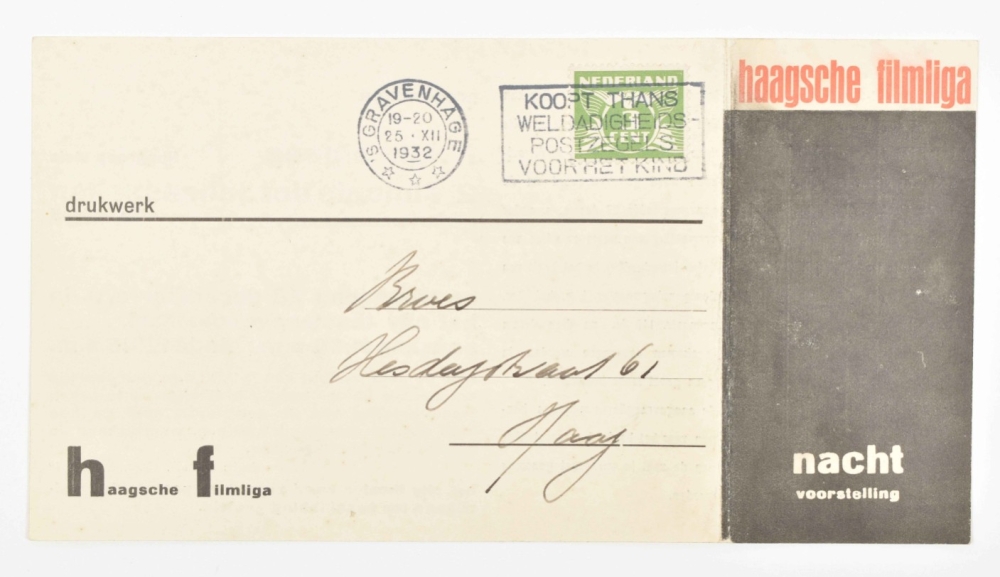 'S GRAVENHAGE
19-20
25 · XII
1932
NEDERLAND
CENT
KOOPT THANS
WELDADIGHEIDS-
POSTZEGELS
VOOR HET KIND
haagsche filmliga
drukwerk
Broes
Mesdagstraat 61
Haag
haagsche filmliga
nacht
voorstelling